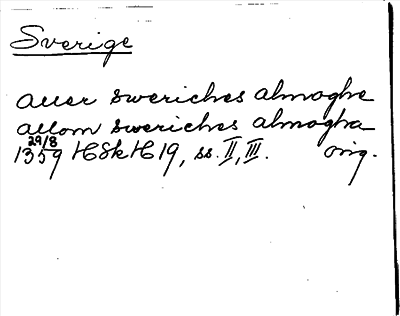 Sverige
aller sweriches almoghe
allom sweriches almogha
29/8
1359 HSkH 19, ss. II, III. orig.